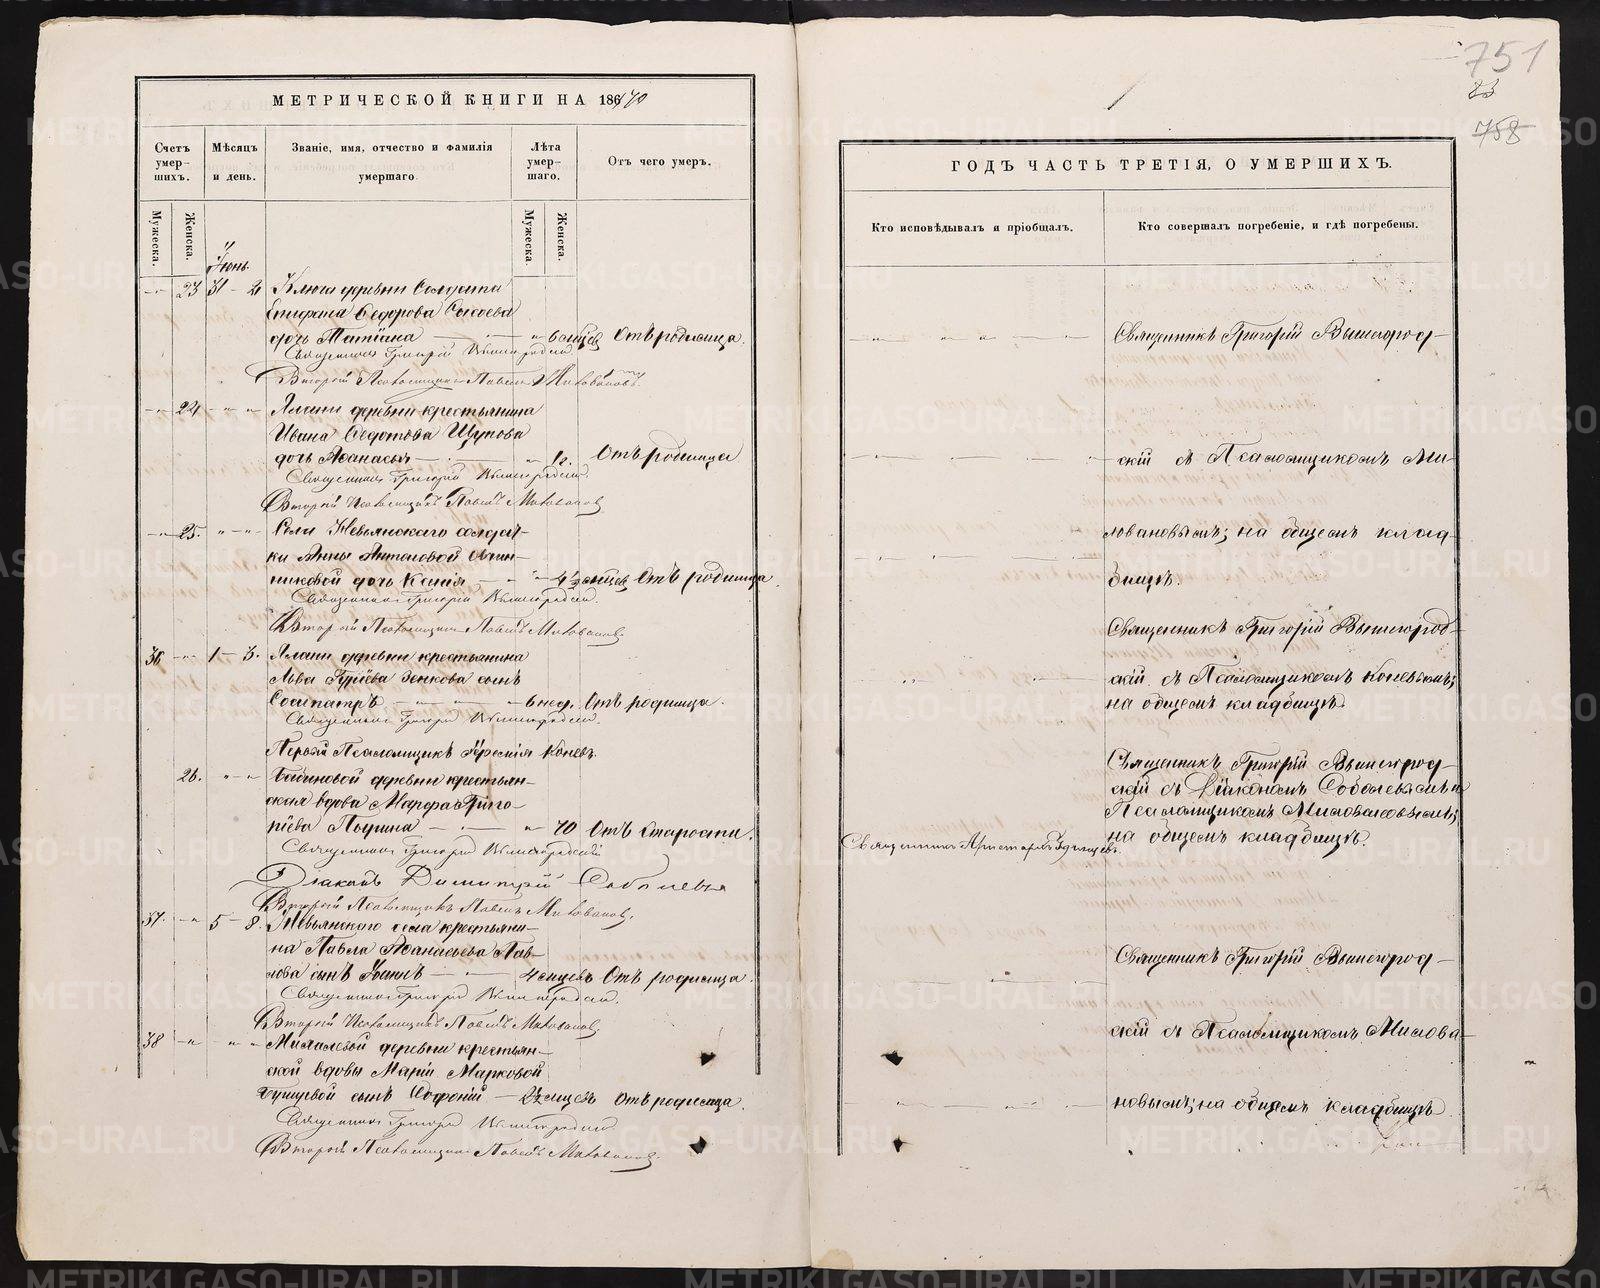 МЕТРИЧЕСКОЙ КНИГИ НА 1870
Счетъ умер-шихъ.
Мѣсяцъ и день.
Званіе, имя, отчество и фамилія умершаго.
Лѣта умер-шаго.
Отъ чего умеръ.
Мужеска.
Женска.
Мужеска.
Женска.
Іюнь.
23 31 – 2 Ключа деревни Солдата
Епифана Ѳедорова Сысоева
дочь Татіана 6 мѣсяц. Отъ родимца.
Священникъ Григорій Вышегородскій
Второй Псаломщикъ Павелъ Миловановъ.
24 Ялани деревни крестьянина
Ивана Ѳедотова Щупова
дочь Аѳанасья Отъ родимца
Священникъ Григорій Вышегородскій.
Второй Псаломщикъ Павелъ Миловановъ
25. Села Невьянскаго солдат-
ки Анны Антоновой Овчин-
никовой дочь Ксенія Отъ родимца.
Священникъ Григорій Вышегородскій.
Второй Псаломщикъ Павелъ Миловановъ.
36 1 – 3. Ялани деревни крестьянина
Льва Зенкова сынъ
Сосипатръ 6 нед. Отъ родимца.
Священникъ Григорій Вышегородскій.
Первый Псаломщикъ Коневъ.
26. деревни крестьян-
ская вдова Марѳа Григо-
рьева 70 Отъ старости.
Священникъ Григорій Вышегородскій
Діаконъ Димитрій Соболевъ
Второй Псаломщикъ Павелъ Миловановъ.
37. 5 – 8. Невьянскаго села крестьяни-
на Павла Аѳанасьева Пав-
лова сынъ 4 мѣсяцевъ Отъ родимца.
Священникъ Григорій Вышегородскій.
Второй Псаломщикъ Павелъ Миловановъ.
38 деревни крестьян-
ской вдовы Маріи Марковой
сынъ Отъ родимца.
Священникъ Григорій Вышегородскій
Второй Псаломщикъ Павелъ Миловановъ.
751
83
758
ГОДЪ ЧАСТЬ ТРЕТІЯ, О УМЕРШИХЪ.
Кто исповѣдывалъ и пріобщалъ.
Кто совершалъ погребеніе, и гдѣ погребены.
Священникъ Григорій Вышегород-
скій съ Псаломщикомъ Ми-
ловановымъ; на общемъ клад-
бищѣ.
Священникъ Григорій Вышегород-
скій съ Псаломщикомъ Коневымъ;
на общемъ кладбищѣ.
Священникъ Григорій Вышегород-
скій съ Діакономъ Соболевымъ и
Псаломщикомъ Миловановымъ;
на общемъ кладбищѣ.
Священникъ Аристархъ
Священникъ Григорій Вышегород-
скій съ Псаломщикомъ Милова-
новымъ; на общемъ кладбищѣ.
METRIKI.GASO-URAL.RU